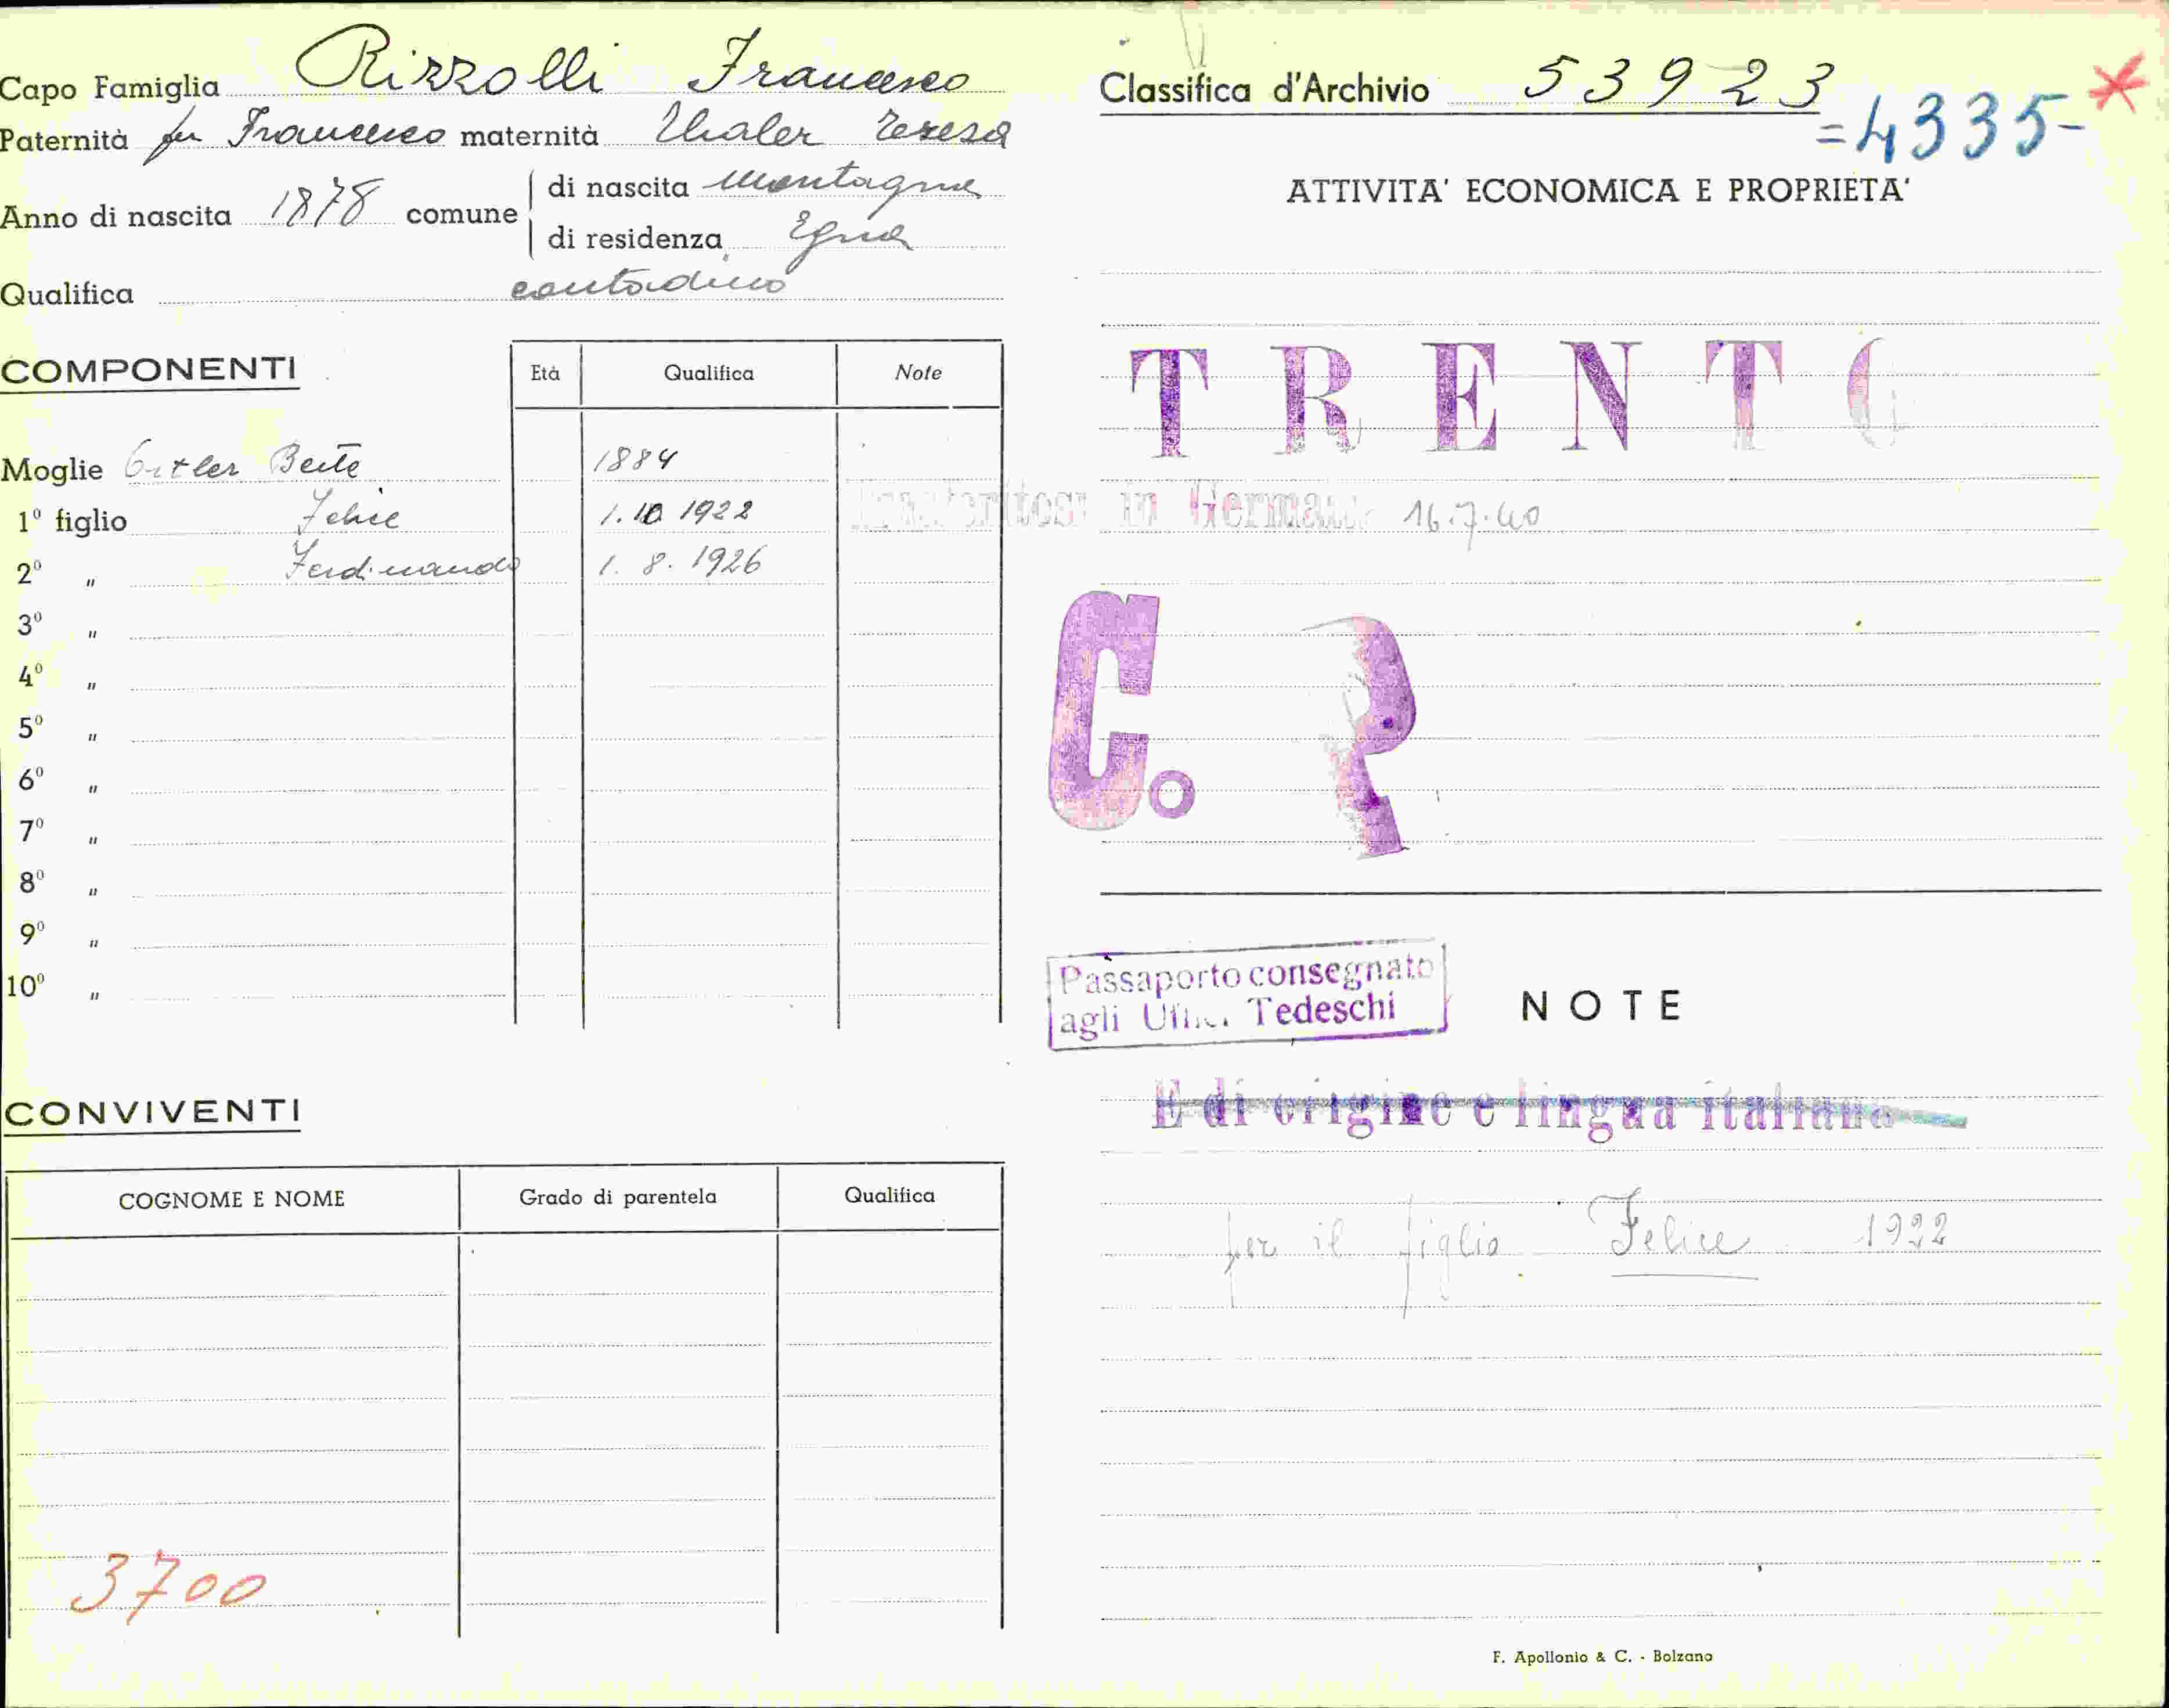 Capo Famiglia Rizzolli Francesco
Paternità fu Francesco maternità Thaler Teresa
Anno di nascita 1878 comune
di nascita Montagna
di residenza Egna
Qualifica contadino
COMPONENTI
Età Qualifica Note
Moglie 1884
1º figlio Felice 1.10.1922
2º " Ferdinando 1.8.1926
3º "
4º "
5º "
6º "
7º "
8º "
9º "
10º "
CONVIVENTI
COGNOME E NOME Grado di parentela Qualifica
3700
Classifica d'Archivio 53923
=4335- *
ATTIVITA' ECONOMICA E PROPRIETA'
TRENTO
in 16.7.40
C. R
Passaporto consegnato
agli Tedeschi
NOTE
E di origine e lingua italiana
per il figlio Felice 1922
F. Apollonio & C. - Bolzano